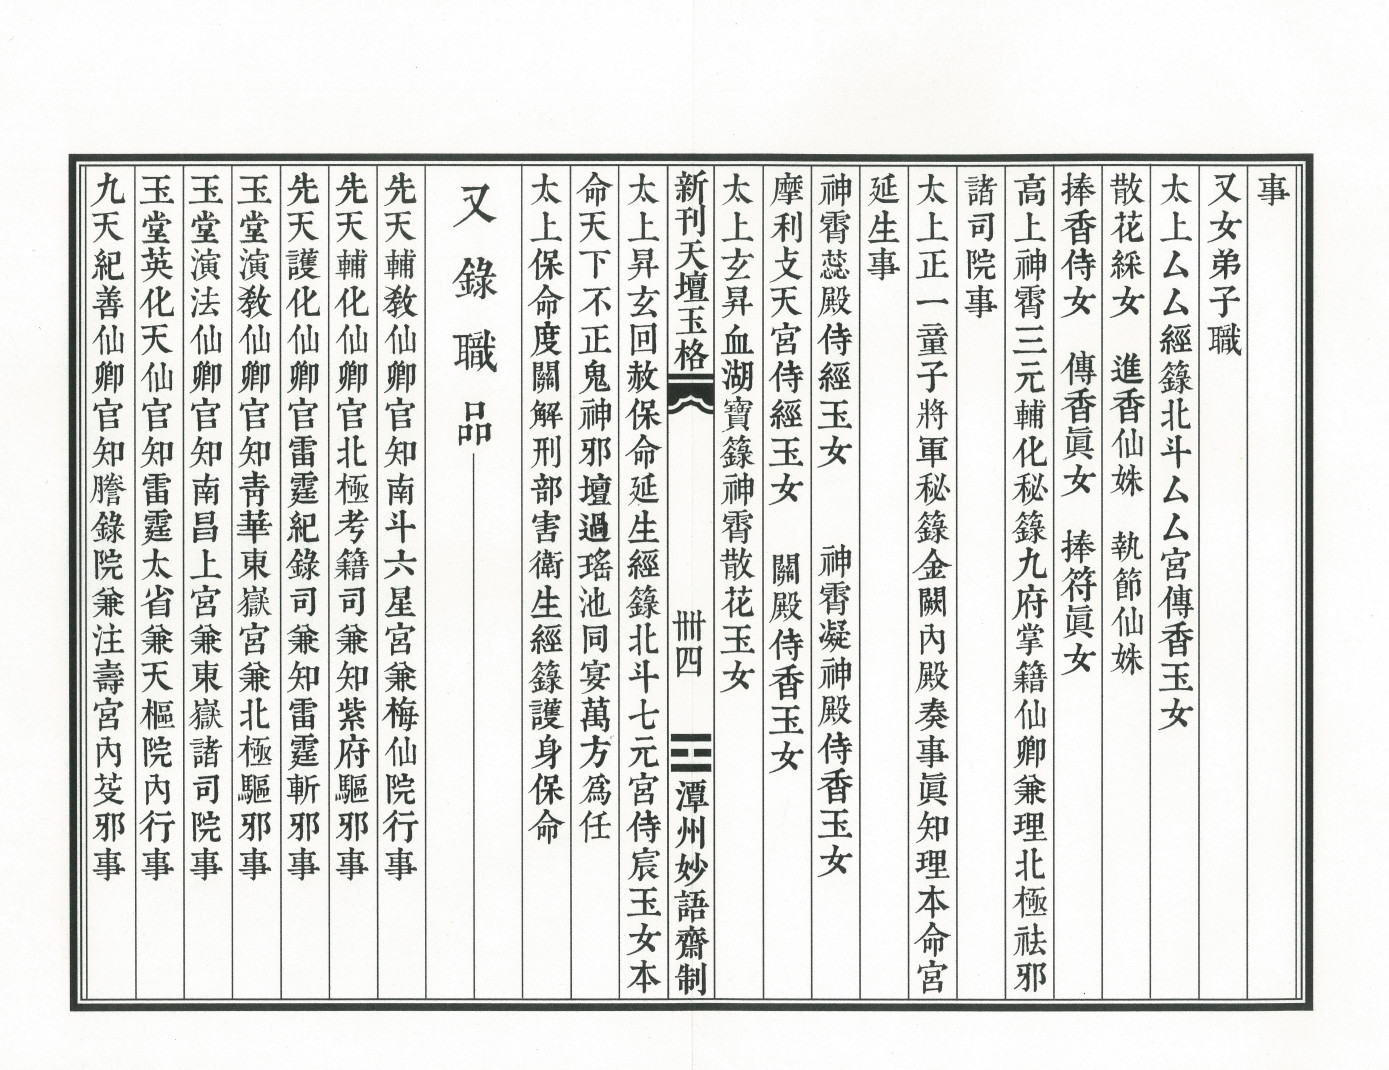 事
又女弟子職
太上厶厶經籙北斗厶厶宮傳香玉女
散花綵女　進香仙姝　執節仙姝
捧香侍女　傳香眞女　捧符眞女
高上神霄三元輔化秘籙九府掌籍仙卿兼理北極祛邪
諸司院事
太上正一童子將軍秘籙金闕內殿奏事眞知理本命宮
延生事
神霄蕊殿侍經玉女　　神霄凝神殿侍香玉女
摩利攴天宮侍經玉女　關殿侍香玉女
太上玄昇血湖寶籙神霄散花玉女
新刊天壇玉格
卌四
潭州妙語齋制
太上昇玄回赦保命延生經籙北斗七元宮侍宸玉女本
命天下不正鬼神邪壇過瑤池同宴萬方為任
太上保命度關解刑部害衛生經籙護身保命
又錄職品
先天輔教仙卿官知南斗六星宮兼梅仙院行事
先天輔化仙卿官北極考籍司兼知紫府驅邪事
先天護化仙卿官雷霆紀錄司兼知雷霆斬邪事
玉堂演教仙卿官知青華東嶽宮兼北極驅邪事
玉堂演法仙卿官知南昌上宮兼東嶽諸司院事
玉堂英化天仙官知雷霆太省兼天樞院內行事
九天紀善仙卿官知謄錄院兼注壽宮內芟邪事